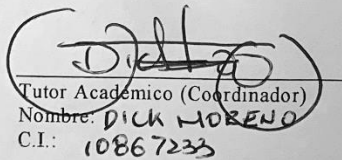 Tutor Académico (Coordinador)
Nombre: DICK MORENO
C.I.: 10867233